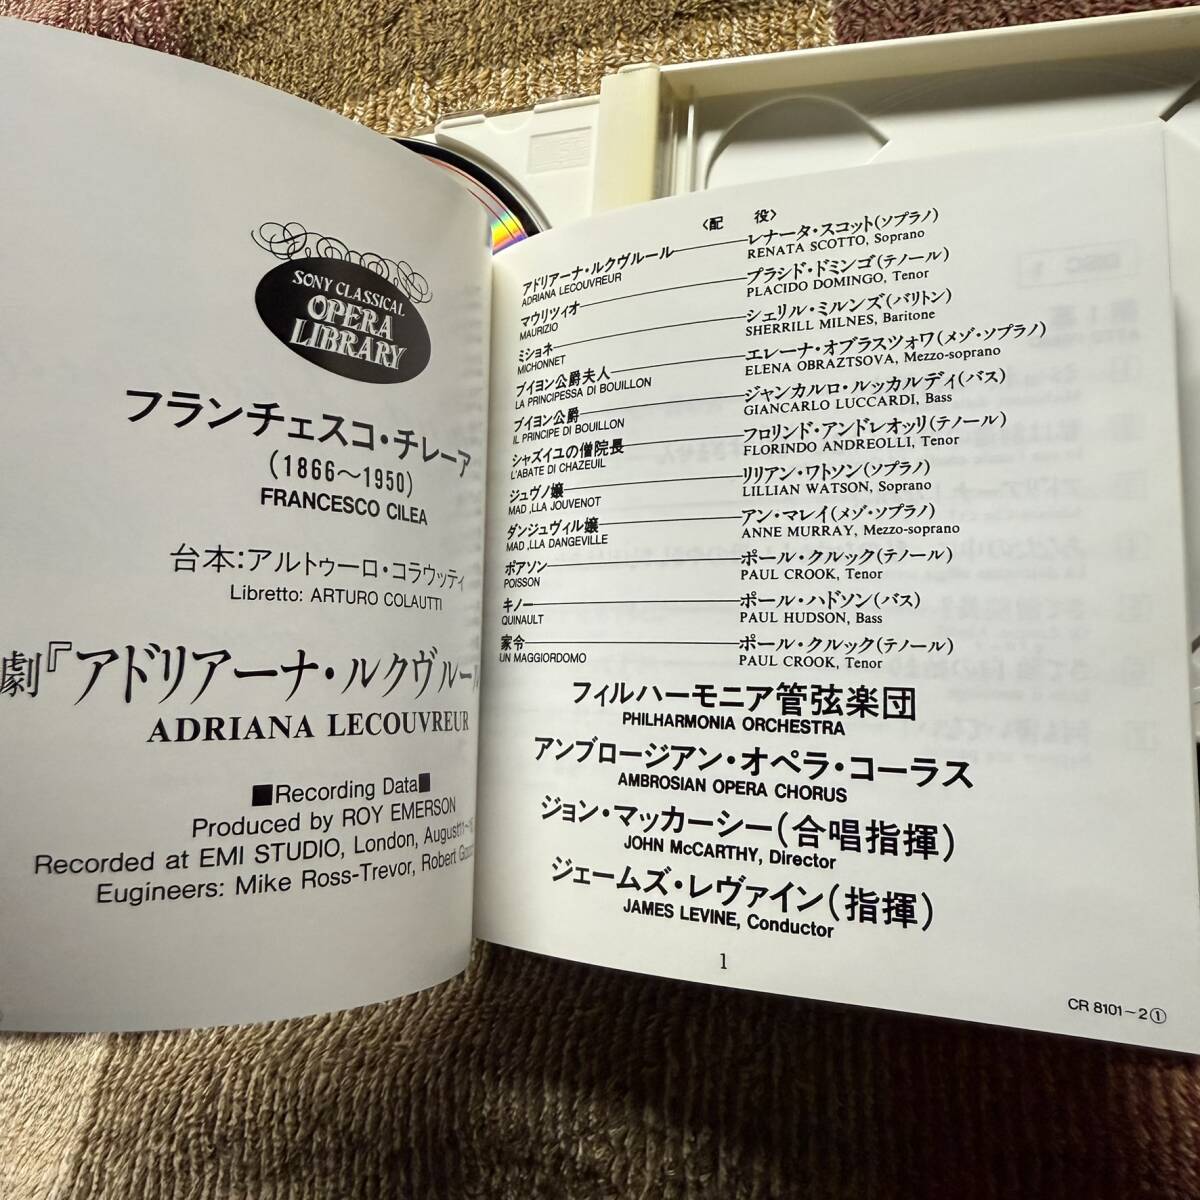 SONY CLASSICAL
OPERA
LIBRARY
フランチェスコ・チレーア
(1866～1950)
FRANCESCO CILEA
台本：アルトゥーロ・コラウッティ
Libretto: ARTURO COLAUTTI
劇『アドリアーナ・ルクヴルール
ADRIANA LECOUVREUR
■Recording Data■
Produced by ROY EMERSON
Recorded at EMI STUDIO, London, August
Eugineers: Mike Ross-Trevor, Robert
〈配　役〉
アドリアーナ・ルクヴルール――レナータ・スコット(ソプラノ)
ADRIANA LECOUVREUR RENATA SCOTTO, Soprano
マウリツィオ――プラシド・ドミンゴ(テノール)
MAURIZIO PLACIDO DOMINGO, Tenor
ミショネ――シェリル・ミルンズ(バリトン)
MICHONNET SHERRILL MILNES, Baritone
ブイヨン公爵夫人――エレーナ・オブラスツォワ(メゾ・ソプラノ)
LA PRINCIPESSA DI BOUILLON ELENA OBRAZTSOVA, Mezzo-soprano
ブイヨン公爵――ジャンカルロ・ルッカルディ(バス)
IL PRINCIPE DI BOUILLON GIANCARLO LUCCARDI, Bass
シャズイユの僧院長――フロリンド・アンドレオッリ(テノール)
L'ABATE DI CHAZEUIL FLORINDO ANDREOLLI, Tenor
ジュヴノ嬢――リリアン・ワトソン(ソプラノ)
MAD,LLA JOUVENOT LILLIAN WATSON, Soprano
ダンジュヴィル嬢――アン・マレイ(メゾ・ソプラノ)
MAD,LLA DANGEVILLE ANNE MURRAY, Mezzo-soprano
ポアソン――ポール・クルック(テノール)
POISSON PAUL CROOK, Tenor
キノー――ポール・ハドソン(バス)
QUINAULT PAUL HUDSON, Bass
家令――ポール・クルック(テノール)
UN MAGGIORDOMO PAUL CROOK, Tenor
フィルハーモニア管弦楽団
PHILHARMONIA ORCHESTRA
アンブロージアン・オペラ・コーラス
AMBROSIAN OPERA CHORUS
ジョン・マッカーシー(合唱指揮)
JOHN McCARTHY, Director
ジェームズ・レヴァイン(指揮)
JAMES LEVINE, Conductor
1
CR 8101～2①